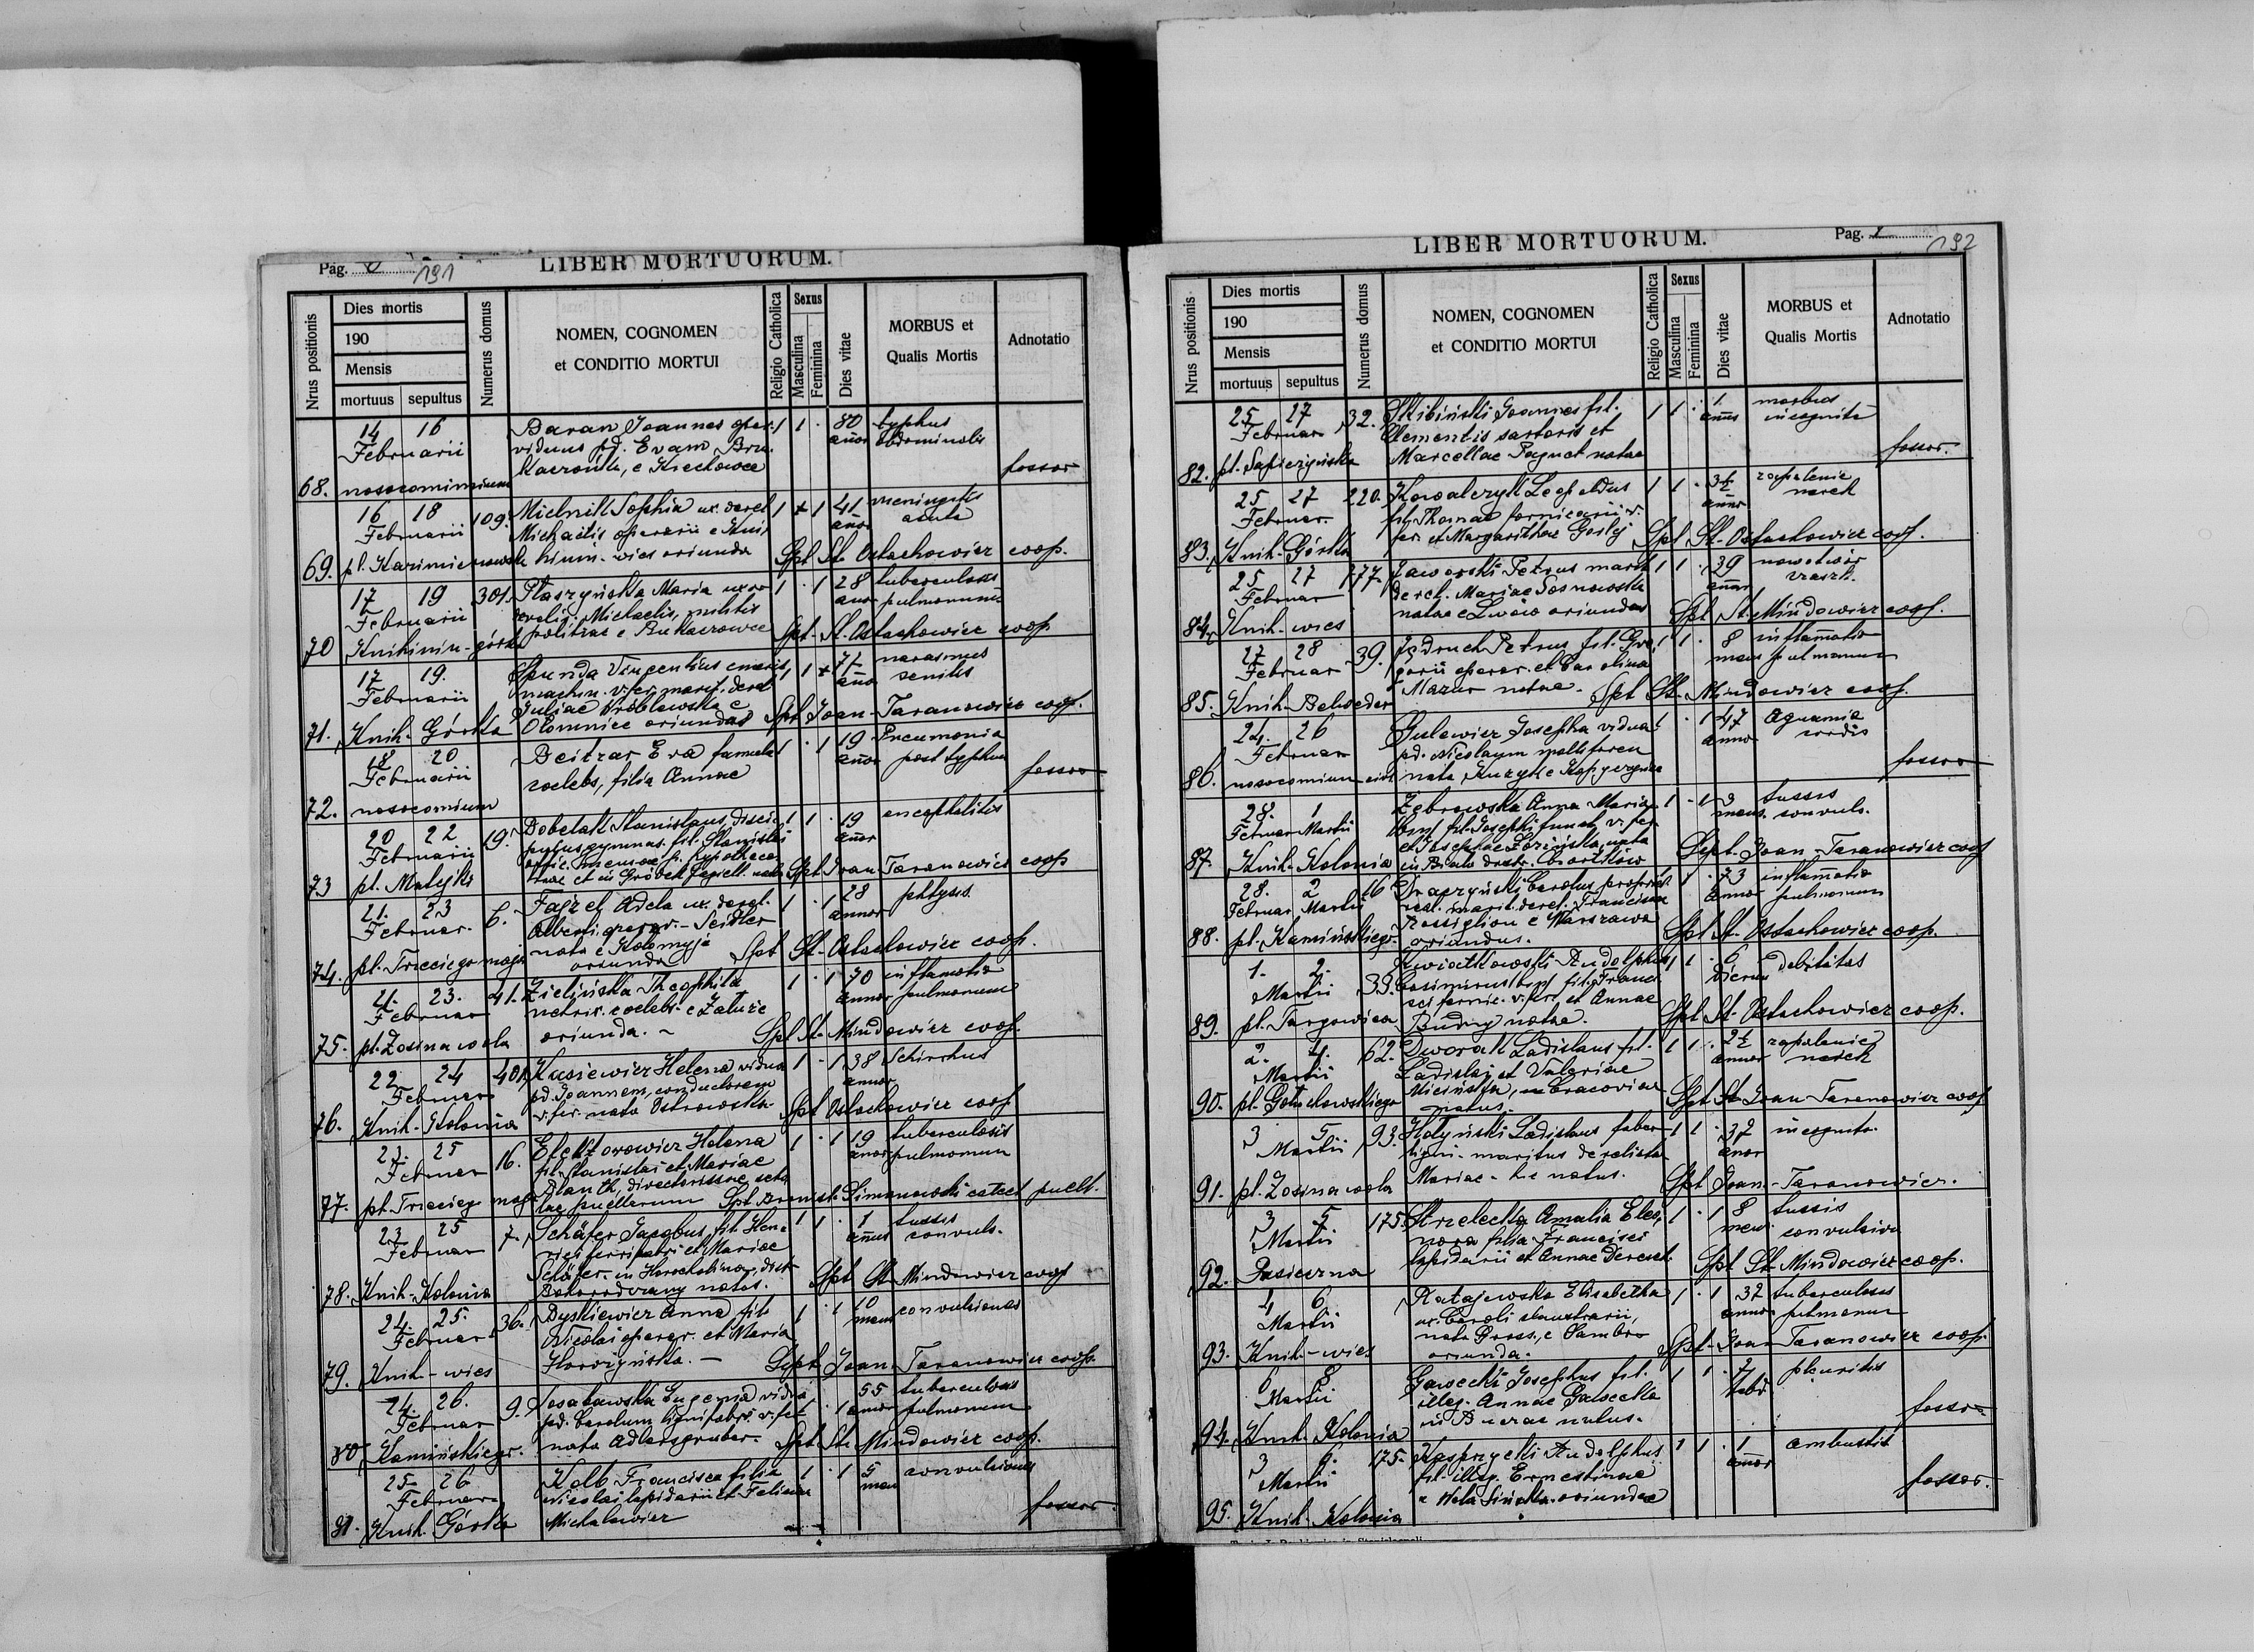 Pag. 191
LIBER MORTUORUM.
Nrus positionis
Dies mortis
190
Mensis
mortuus
sepultus
Numerus domus
NOMEN, COGNOMEN
et CONDITIO MORTUI
Religio Catholica
Sexus
Masculina
Feminina
Dies vitae
MORBUS et
Qualis Mortis
Adnotatio
14 16 Baran Joannes oper. 1 1 · 80 typhus
Februarii viduus pd. Evam annor abdominalis
e Krechowce fossor
68. nosocomium
16 18 109. Mielnik Sophia ux. derel. 1 1 41 meningitis
Februarii Michaelis operarii e Kni- annor acuta
69. pl. Kazimierowska hinin-wies oriunda Spt St. Ostachowicz coop.
17 19 301. Ptaszyńska Maria uxor 1 · 1 28 tuberculosis
Februarii relig. Michaelis, militis annor pulmonum
70 Knihinin-górka politiae e Bukaczowce Spt. St. Ostachowicz coop.
17 19. Spunda Vincentius 1 1 77 marasmus
Februarii machin. v. fer. marit. derel. senilis
Juliae Wróblewska e
71. Knih-Górka Ołomuniec oriundus Spt Joan-Taranowicz coop.
18 20 Beitzar Eva famula 1 · 1 19 Pneumonia
Februarii coelebs, filia Annae annor post typhum
fossor
72. nosocomium
20 22 19. Dobelak Stanislaus, disci- 1 1 · 19 encephalitis
Februarii pulus gymnas. fil. Stanislai annor
73 pl. Matejki et in Gródek Jagiell. natus Spt Joan Taranowicz coop
21. 23 6. Fajzel Adela ux. derel. 1 · 1 28 phtysis
Februar. Alberti operar. - Seidler annor
nata e Kołomyja
74. pl. Trzeciego maja oriunda Spt St. Ostachowicz coop.
21. 23. 41. Zielińska Theophila 1 · 1 70 inflamatio
Februar coelebs e Załuże annor pulmonum
75. pl. Zosina wola oriunda. - Spt St. Mindowicz coop.
22 24 401 Kusiewicz Helena vidua 1 · 1 38 Schirrhus
Februar pd. Joannem, conductorem annor
76. Knih-Kolonia v. fer. nata Ostrowska. Spt Ostachowicz coop
23. 25 16. Elektorowicz Helena 1 · 1 19 tuberculosis
Februar fil. Stanislai et Mariae annor pulmonum
directorissae scho-
77. pl. Trzeciego maja lae puellarum Spt Simonowski catech puell.
23. 25 7. Schäfer Jacobus, fil. Hen- 1 1 · 1 tussis
Februar rici ferripatri et Mariae annus convuls.
Schäfer in Horocholina, distr
78. Knih-Kolonia Bohorodczany natus. Spt St. Mindowicz coop
24. 25. 36. Dyskiewicz Anna fil. 1 · 1 10 convulsiones
Februar Nicolai operar. et Maria mens
79. Knih-wies Horożyńska. - Spt Joan Taranowicz coop.
24. 26. 9. Eugenia vidua · 1 55 tuberculosis
Februar pd. Carolum lignifabri. v. fer annor pulmonum
80 Kamińskiego. nata Adlersgruber. Spt St. Mindowicz coop.
25. 26 Kolb Francisca filia 1 · 1 5 convulsiones
Februar. Nicolai lapidarii et Feliciae mens
fossor.
81. Knih-Górka Michalewicz
Pag. 192
LIBER MORTUORUM.
Nrus positionis
Dies mortis
190
Mensis
mortuus
sepultus
Numerus domus
NOMEN, COGNOMEN
et CONDITIO MORTUI
Religio Catholica
Sexus
Masculina
Feminina
Dies vitae
MORBUS et
Qualis Mortis
Adnotatio
25 27 32. Skibiński Joannes fil. 1 1 · 1 morbus
Februar Clementis sartoris et annus incognita
82. pl. Sapieżyńska Marcellae natae fossor.
25 27 220. Kowalczyk Leopoldus 1 1 · 3½ zapalenie
Februar. fil. Thomae fornicarii v. annor nerek
83. Knih-Górka fer et Margarithae Spt St. Ostachowicz coop.
25 27 177. Jaworski Petrus marit. 1 1 · 39 nowotwór
Februar derel. Mariae Sosnowska annor czaszk.
84. Knih-wies natae e Lwów oriundus Spt St. Mindowicz coop.
27 28 39. Jędruch Petrus fil. Gre- 1 1 · 8 inflamatio
Februar gorii operar. et Carolina mens pulmonum
85. Knih-Belveder Mazur natae. Spt St. Mindowicz coop.
24. 26 Gulewicz Josepha vidua 1 · 1 47
Februar pd. Nicolaum annor cordis
86. nosocomium nata fossor
28. 1 Żebrowska Anna Maria 1 · 1 3 tussis
Februar Martii fil. Josephi v. fer. mens. convuls.
et Josephae nata
87. Knih-Kolonia in distr. Czortków Spt. Joan-Taranowicz coop
28. 2 16 Drapzyński Carolus propriet. 1 · 73 inflamatio
Februar Martii real. marit. derel. Franciscae annor pulmonum
Rossiglion e Warszawa
88. pl. Kamińskiego oriundus. Spt St. Ostachowicz coop.
1. 2. Kwiatkowski Rudolphus 1 1 · 6 debilitas
Martii 33. Casimirus fil. Franci- dierum
sci fornic. v. fer. et Annae
89. pl. Targowica Budny natae. Spt St. Ostachowicz coop.
2. 4. 62. Dworak Ladislaus fil. 1 1 · 2½ zapalenie
Martii Ladislai et Valeriae annor nerek
Miciński, Cracoviae
90. pl. Gołuchowskiego natus. Spt St Joan Taranowicz coop
3 5 93. Hołyński Ladislaus faber 1 1 · 37 incognita.
Martii ligni-maritus derelicta annor
91. pl. Zosina wola Mariae - hic natus. Spt Joan-Taranowicz.
3 5 175. Strzelecka Amalia Eleo- 1 · 1 8 tussis
Martii nora filia Francisci mens convulsiva
92. Pasieczna lapidarii et Annae Spt St. Mindowicz coop.
4 6 Ratajewska Elisabetha 1 · 1 37 tuberculosis
Martii ux. Caroli claustrarii, annor pulmonum
nata Gross, e Sambor
93. Knih-wies oriunda. Spt-Joan Taranowicz coop.
6 8 Gawecki Josephus fil. 1 1 · 7 pleuritis
Martii illeg. Annae Gawecka hebd.
in natus. fossor
94. Knih-Kolonia
3 6. 175. Kasprzycki Rudolphus 1 1 · 1 ambustio
Martii fil. illeg. Ernestinae annor
oriundae fossor.
95. Knih-Kolonia